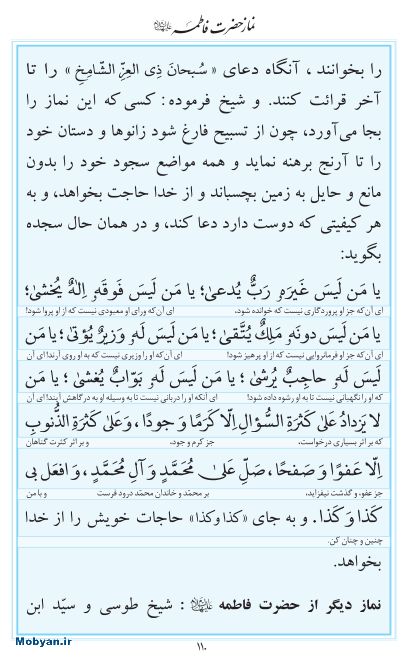 نماز حضرت فاطمه علیهاالسلام
را بخوانند ، آنگاه دعای « سُبحانَ ذِی العِزِّ الشّامِخِ » را تا
آخر قرائت کنند. و شیخ فرموده: کسی که این نماز را
بجا می‌آورد، چون از تسبیح فارغ شود زانوها و دستان خود
را تا آرنج برهنه نماید و همه مواضع سجود خود را بدون
مانع و حایل به زمین بچسباند و از خدا حاجت بخواهد، و به
هر کیفیتی که دوست دارد دعا کند، و در همان حال سجده
بگوید:
یا مَن لَیسَ غَیرَهُ رَبٌّ یُدعیٰ؛ یا مَن لَیسَ فَوقَهُ اِلٰهٌ یُخشیٰ؛
ای آن‌که جز او پروردگاری نیست که خوانده شود، ای آن‌که ورای او معبودی نیست که از او پروا شود!
یا مَن لَیسَ دونَهُ مَلِکٌ یُتَّقیٰ؛ یا مَن لَیسَ لَهُ وَزیرٌ یُؤتیٰ؛ یا مَن
ای آن‌که جز او فرمانروایی نیست که از او پرهیز شود! ای آن‌که او را وزیری نیست که به او روی آرند! ای آن
لَیسَ لَهُ حاجِبٌ یُرشیٰ؛ یا مَن لَیسَ لَهُ بَوّابٌ یُغشیٰ؛ یا مَن
که او را نگهبانی نیست تا به او رشوه داده شود! ای آنکه او را دربانی نیست تا به وسیله او به درگاهش آیند! ای آن
لا یَزدادُ عَلیٰ کَثرَةِ السُّؤالِ اِلّا کَرَمًا وَ جودًا ، وَ عَلیٰ کَثرَةِ الذُّنوبِ
که بر اثر بسیاری درخواست، جز کرم و جود، و بر اثر کثرت گناهان
اِلّا عَفوًا وَ صَفحًا، صَلِّ عَلیٰ مُحَمَّدٍ وَ آلِ مُحَمَّدٍ، وَ افعَل بی
جز عفو، و گذشت نیفزاید، بر محمّد و خاندان محمّد درود فرست و با من
کَذا وَ کَذا. و به جای « کذا و کذا » حاجات خویش را از خدا
چنین و چنان کن.
بخواهد.
نماز دیگر از حضرت فاطمه علیهاالسلام : شیخ طوسی و سیّد ابن
Mobyan.ir
۱۱۰